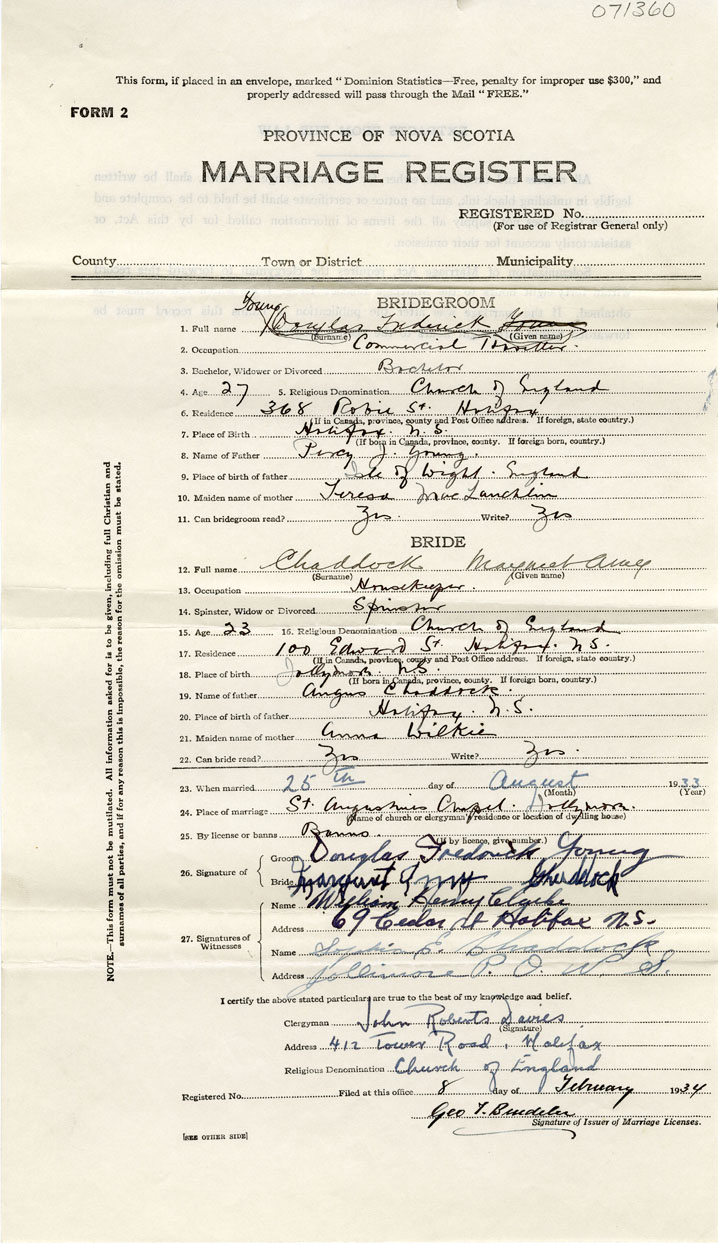 071360
This form, if placed in an envelope, marked "Dominion Statistics—Free, penalty for improper use $300," and
properly addressed will pass through the Mail "FREE."
FORM 2
PROVINCE OF NOVA SCOTIA
MARRIAGE REGISTER
REGISTERED No.
(For use of Registrar General only)
County Town or District Municipality
BRIDEGROOM
Young
1. Full name Douglas Frederick Young
(Surname) (Given name)
2. Occupation Commercial
3. Bachelor, Widower or Divorced Bachelor
4. Age 27 5. Religious Denomination Church of England
6. Residence 368 Robie St. Halifax
(If in Canada, province, county and Post Office address. If foreign, state country.)
7. Place of Birth Halifax. N.S.
(If born in Canada, province, county. If foreign born, country.)
8. Name of Father Percy J. Young.
9. Place of birth of father Isle of Wight. England
10. Maiden name of mother Teresa MacLauchlin
11. Can bridegroom read? Yes. Write? Yes
BRIDE
12. Full name Chaddock Margaret Amey
(Surname) (Given name)
13. Occupation Housekeeper.
14. Spinster, Widow or Divorced Spinster
15. Age 23 16. Religious Denomination Church of England
17. Residence 100 Edward St. Halifax. N.S.
(If in Canada, province, county and Post Office address. If foreign, state country.)
18. Place of birth Jollymore. N.S.
(If born in Canada, province, county. If foreign born, country.)
19. Name of father Angus Chaddock.
20. Place of birth of father Halifax. N.S.
21. Maiden name of mother Anna Wilkie
22. Can bride read? Yes Write? Yes.
23. When married 25th day of August 1933
(Month) (Year)
24. Place of marriage St. Augustines Chapel. Jollymore.
(Name of church or clergyman's residence or location of dwelling house)
25. By license or banns Banns.
(If by licence, give number.)
26. Signature of
Groom Douglas Frederick Young
Bride Margaret Amey Chaddock
27. Signatures of Witnesses
Name William Henry Clarke
Address 69 Cedar St Halifax N.S.
Name E. Chaddock
Address Jollimore P.O. N.S.
I certify the above stated particulars are true to the best of my knowledge and belief.
Clergyman John Roberts Davies
(Signature)
Address 412 Tower Road, Halifax
Religious Denomination Church of England
Registered No. Filed at this office 8 day of February 1934
Geo T.
Signature of Issuer of Marriage Licenses.
[SEE OTHER SIDE]
NOTE.—This form must not be mutilated. All information asked for is to be given, including full Christian and
surnames of all parties, and if for any reason this is impossible, the reason for the omission must be stated.